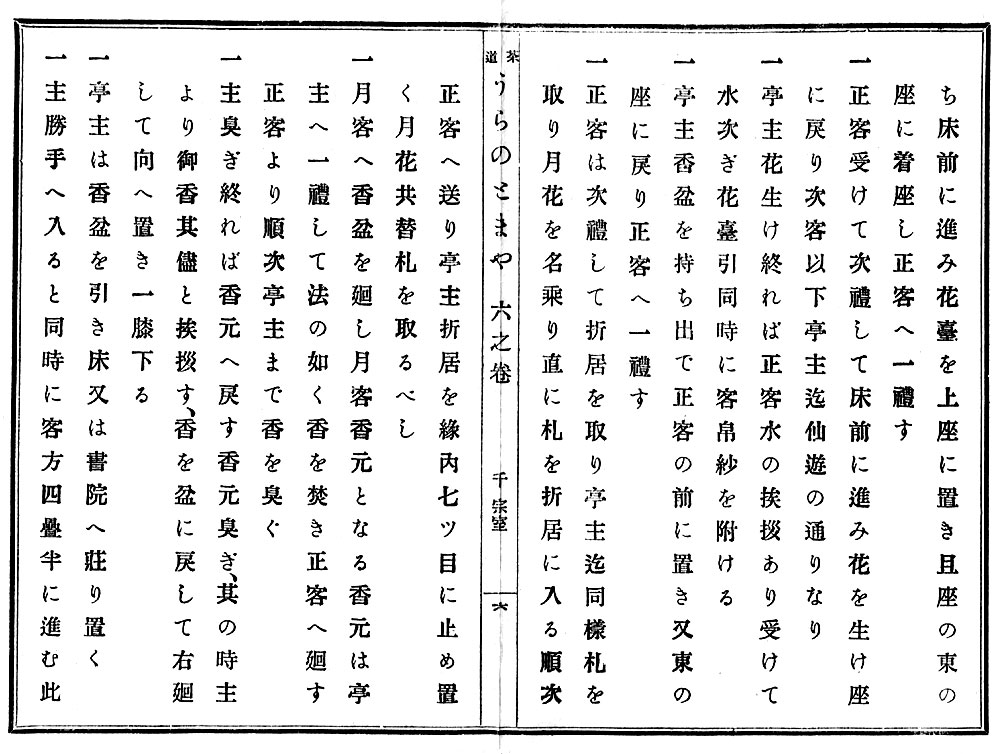 ち床前に進み花臺を上座に置き且座の東の
座に着座し正客へ一禮す
一正客受けて次禮して床前に進み花を生け座
に戻り次客以下亭主迄仙遊の通りなり
一亭主花生け終れば正客水の挨拶あり受けて
水次ぎ花臺引同時に客帛紗を附ける
一亭主香盆を持ち出で正客の前に置き又東の
座に戻り正客へ一禮す
一正客は次禮して折居を取り亭主迄同樣札を
取り月花を名乘り直に札を折居に入る順次
茶道 うらのとまや 六之卷 千宗室 六
正客へ送り亭主折居を緣內七ツ目に止め置
く月花共替札を取るべし
一月客へ香盆を廻し月客香元となる香元は亭
主へ一禮して法の如く香を焚き正客へ廻す
正客より順次亭主まで香を臭ぐ
一主臭ぎ終れば香元へ戻す香元臭ぎ、其の時主
より御香其儘と挨拶す、香を盆に戻して右廻
して向へ置き一膝下る
一亭主は香盆を引き床又は書院へ莊り置く
一主勝手へ入ると同時に客方四疊半に進む此